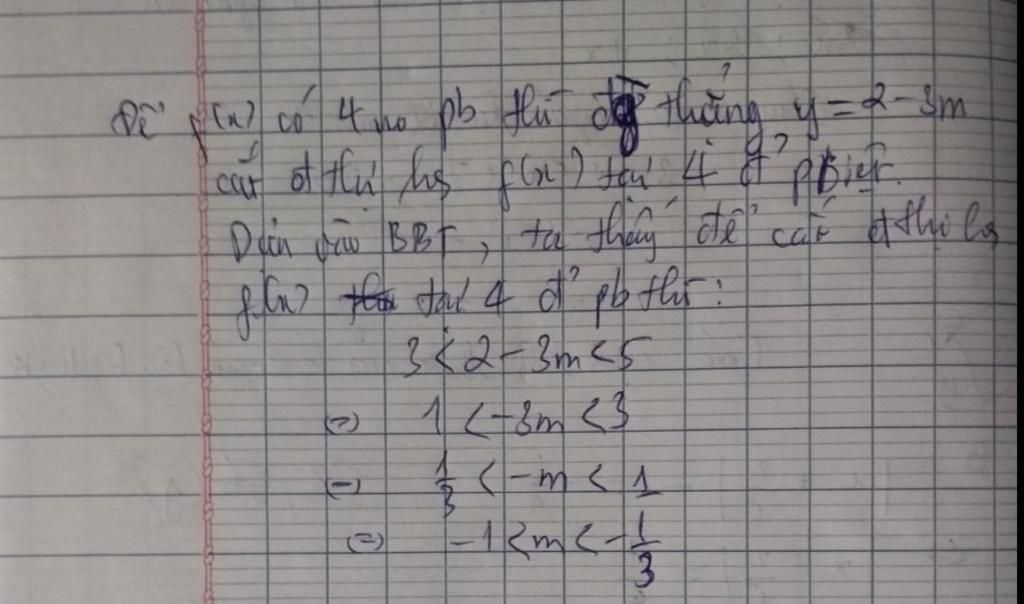 Để f(x) có 4 no pb thì đg thẳng y = 2 - 3m
cắt đthị hs f(x) tại 4 đ' pbiệt.
Dựa vào BBT, ta thấy để cắt đthị hs
f(x) tại 4 đ' pb thì:
3 < 2 - 3m < 5
(=) 1 < -3m < 3
(=) 1/3 < -m < 1
(=) -1 < m < -1/3